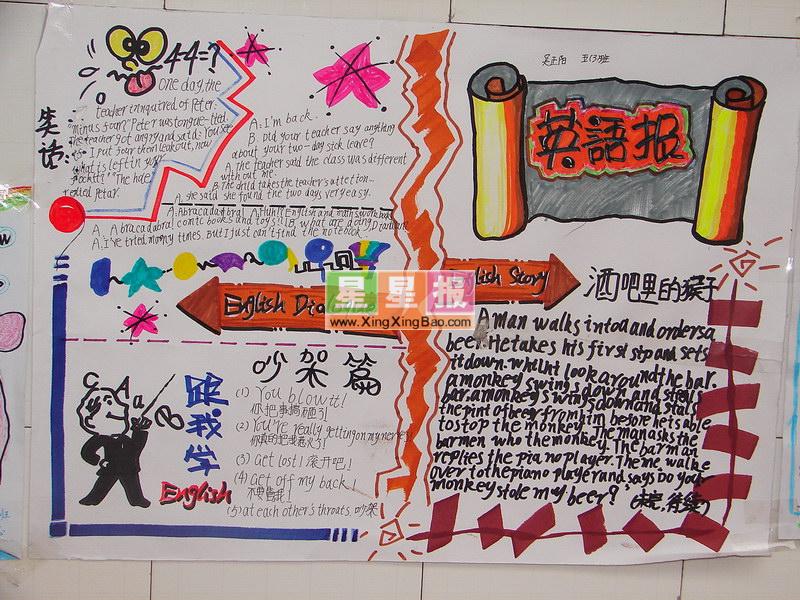 英語报
笑话:
4-4=?
one day, the
teacher inngatred of Peter.
"minus four" Peter was tongue-tied
The teacher got angry and said: You see
I put four
what is left in your
pockit?" "The hole"
Petar.
A: I'm back.
B Did your teacher say anything
about your two-day sick leave?
A the teacher said the class was different
with out me.
A she said she found the two days very easy.
A. Abracadabra!
comic books and toys!! B. what are doing
A. I've tried money ttimes. But I just can't find the notebook.
English
星星报
www.XingXingBao.com
English Story
吵架篇
跟我学
English
(1) You blow it!
你把事搞砸了!
(2) You're really getting on my nerves!
(3) Get lost! 滚开吧!
(4) Get off my back!
(5) at each other's throats. 吵架
酒吧里的猴子
A man walks into a and orders a
beer. He takes his first stp and sets
it down. whilht look around the bar.
a monkey swings down and steals
bar. a monkey swings down and stals
the pint of beer from him before he is able
to stop the monkey. The man asks the
barmen who the monkey. The barman
replies the piano player. The me walke
over to the piano player and says Do your
monkey stole my beer?" (未完,待续)